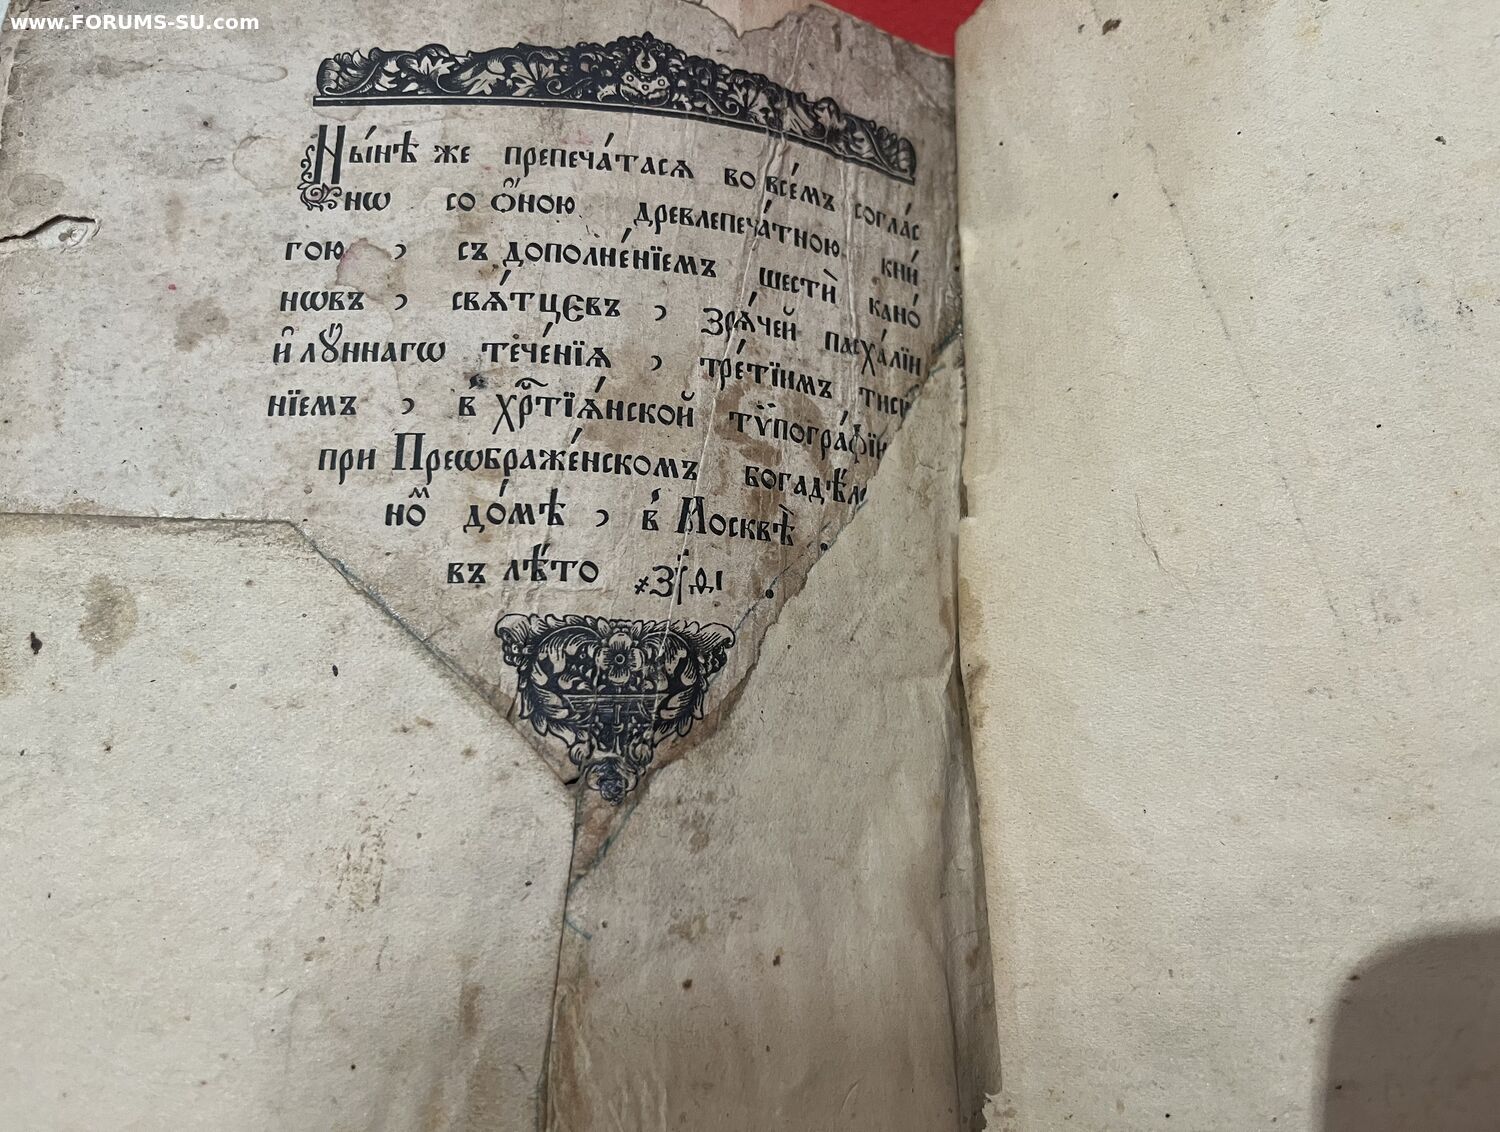 www.FORUMS-SU.com
Ны́нѣ же препеча́тасѧ во все́мъ согла́с
нѡ со ѻ҆́ною древлепеча́тною кни́
гою , съ дополне́нїемъ шестѝ кано́
нѡвъ , свѧ́тцєвъ , зрѧ́чей пасха́лїи
и҆ лꙋ́ннагѡ тече́нїѧ , тре́тїимъ тисн
нїемъ , в̾ хр҇тїѧ́нской тѷпогра́фїи
при Преѡбраже́нскомъ богадѣ́лн
ноⷨ до́мѣ , в̾ Москвѣ̀ .
въ лѣ́то ҂зу҃ді .